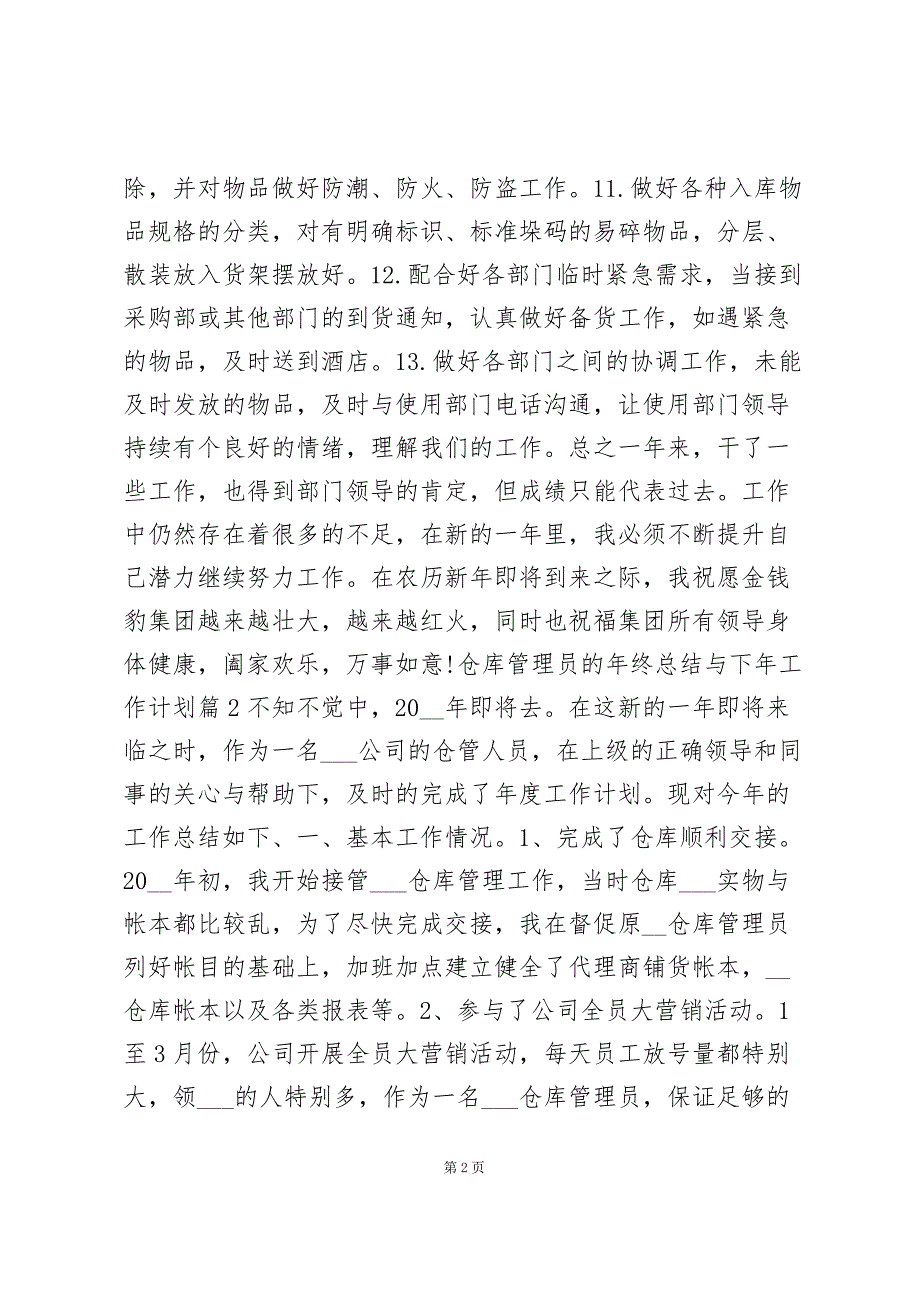 除，并对物品做好防潮、防火、防盗工作。11.做好各种入库物
品规格的分类，对有明确标识、标准垛码的易碎物品，分层、
散装放入货架摆放好。12.配合好各部门临时紧急需求，当接到
采购部或其他部门的到货通知，认真做好备货工作，如遇紧急
的物品，及时送到酒店。13.做好各部门之间的协调工作，未能
及时发放的物品，及时与使用部门电话沟通，让使用部门领导
持续有个良好的情绪，理解我们的工作。总之一年来，干了一
些工作，也得到部门领导的肯定，但成绩只能代表过去。工作
中仍然存在着很多的不足，在新的一年里，我必须不断提升自
己潜力继续努力工作。在农历新年即将到来之际，我祝愿金钱
豹集团越来越壮大，越来越红火，同时也祝福集团所有领导身
体健康，阖家欢乐，万事如意!仓库管理员的年终总结与下年工
作计划篇 2 不知不觉中，20__年即将去。在这新的一年即将来
临之时，作为一名___公司的仓管人员，在上级的正确领导和同
事的关心与帮助下，及时的完成了年度工作计划。现对今年的
工作总结如下、一、基本工作情况。1、完成了仓库顺利交接。
20__年初，我开始接管___仓库管理工作，当时仓库___实物与
帐本都比较乱，为了尽快完成交接，我在督促原__仓库管理员
列好帐目的基础上，加班加点建立健全了代理商铺货帐本，__
仓库帐本以及各类报表等。2、参与了公司全员大营销活动。1
至 3 月份，公司开展全员大营销活动，每天员工放号量都特别
大，领___的人特别多，作为一名___仓库管理员，保证足够的
第 2 页